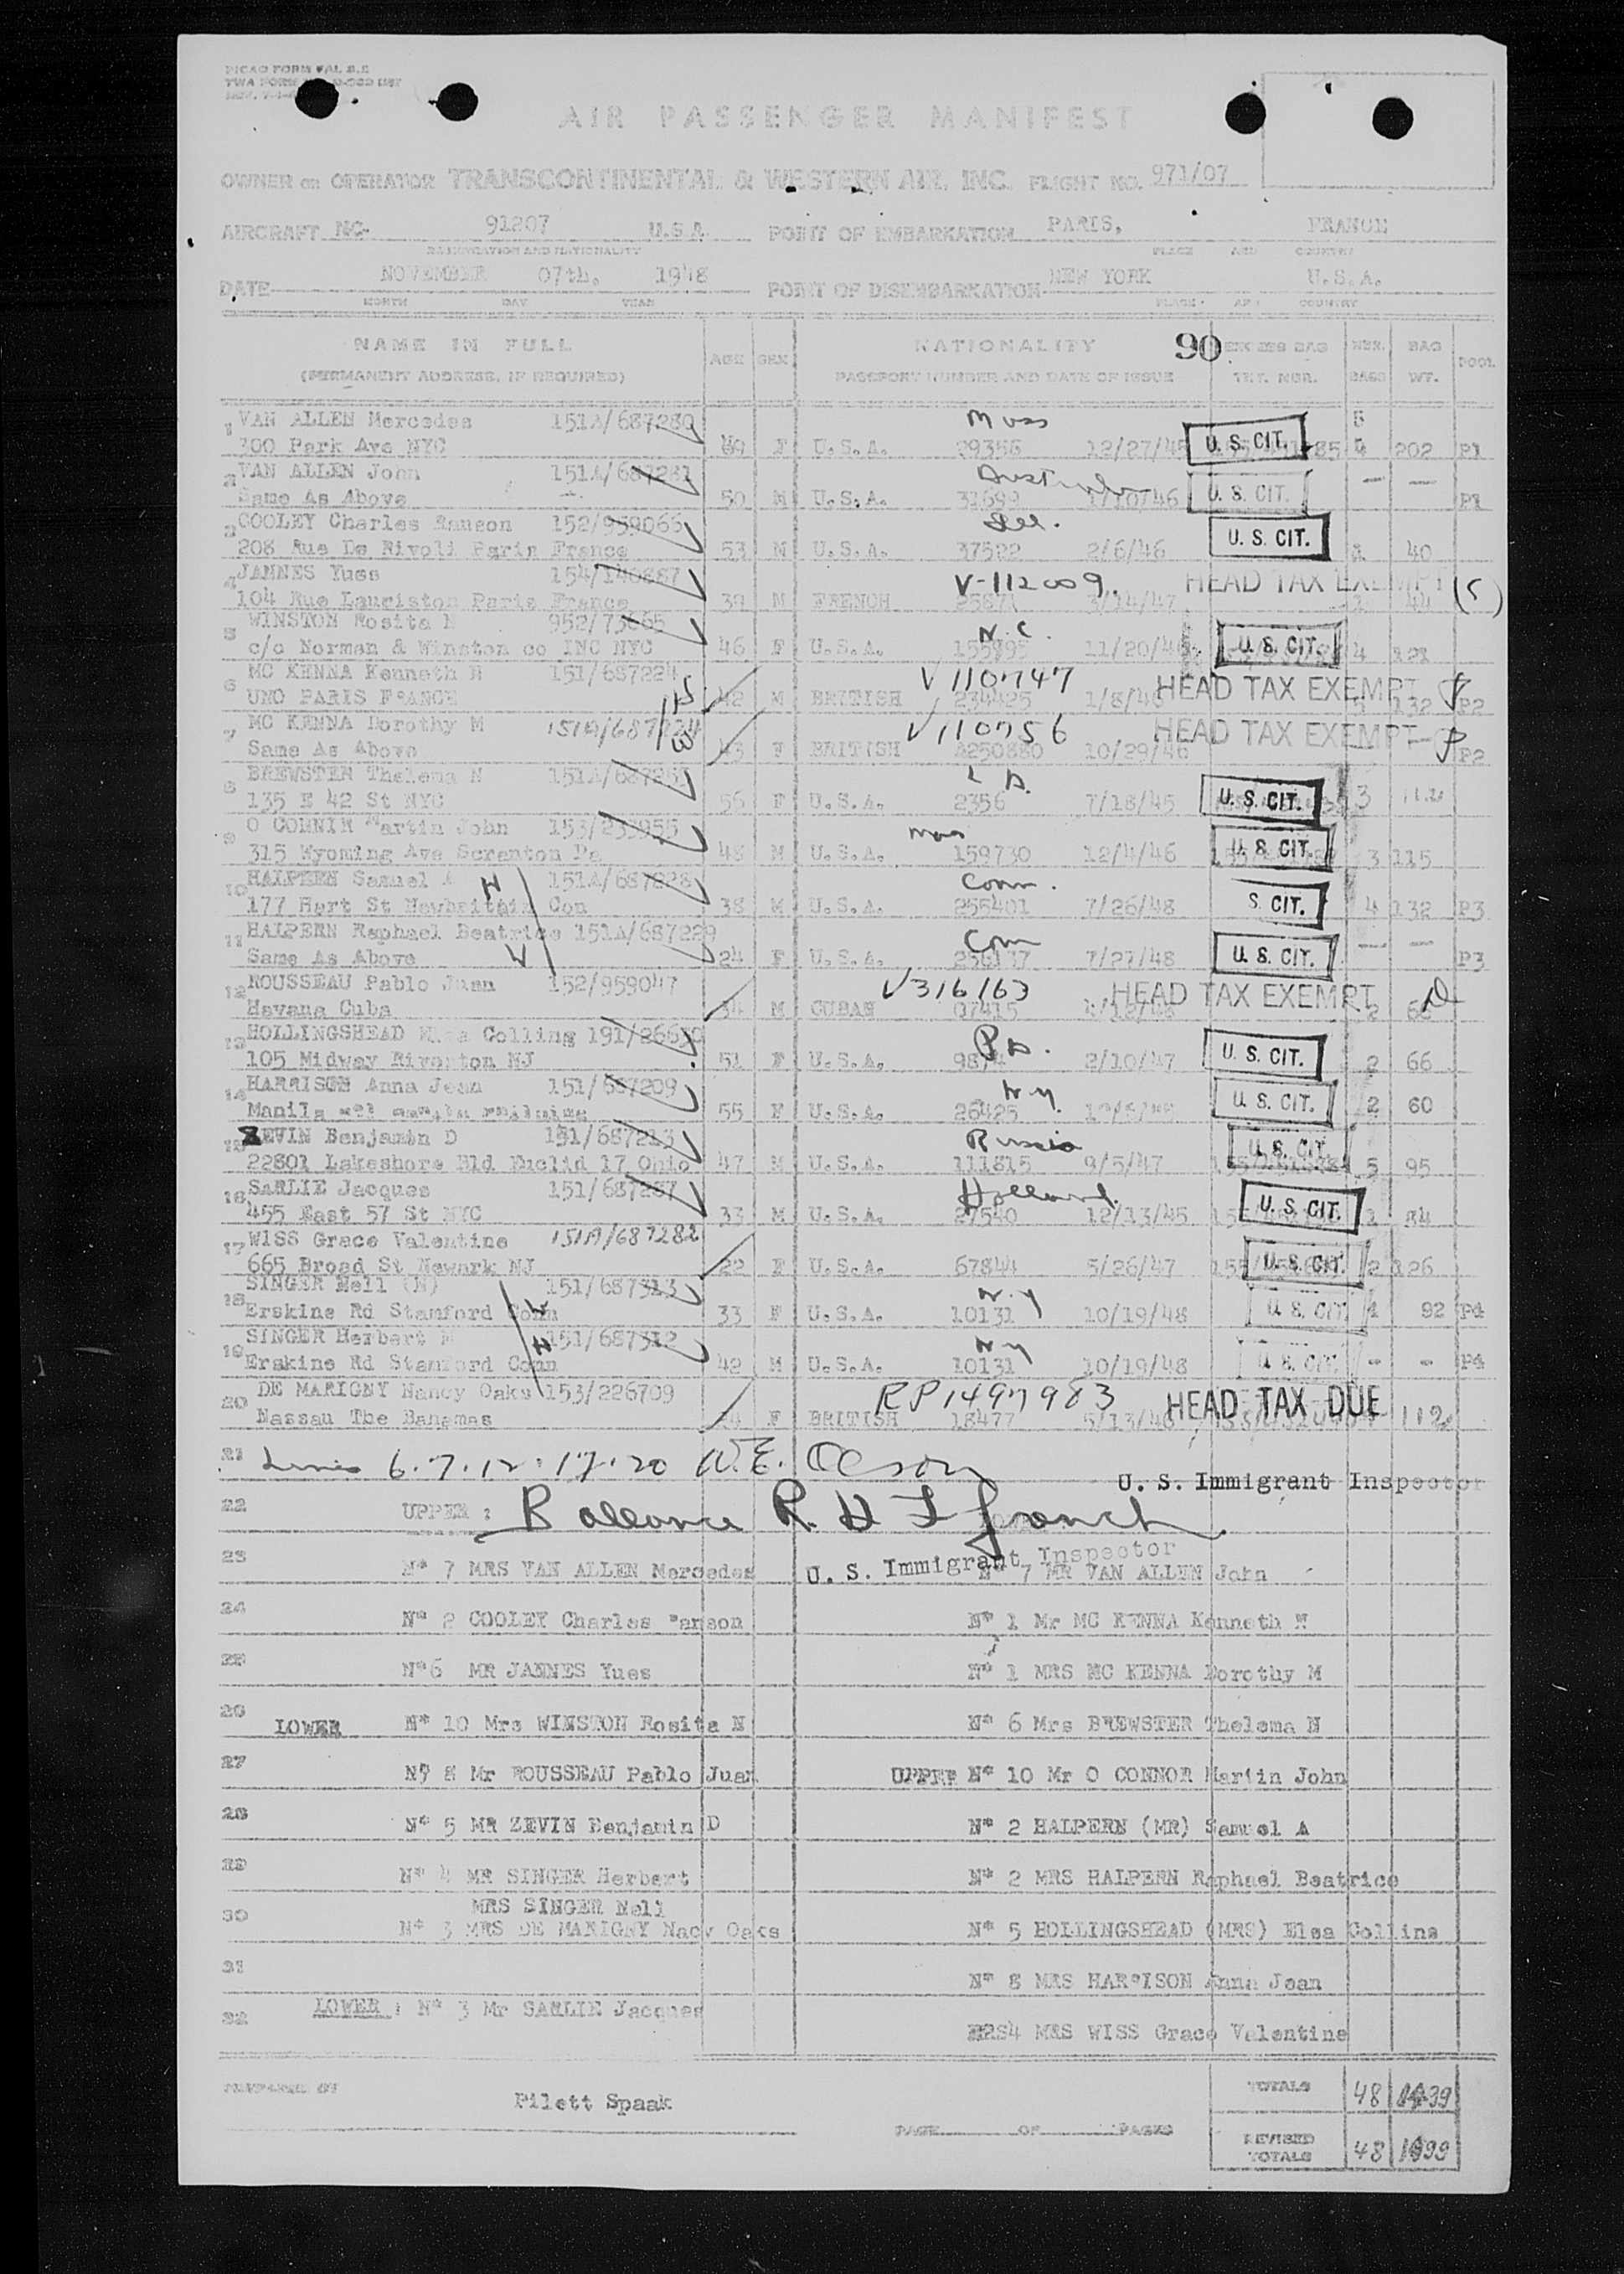 PICAO FORM
TWA FORM
AIR PASSENGER MANIFEST
OWNER OR OPERATOR TRANSCONTINENTAL & WESTERN AIR, INC. FLIGHT NO. 971/07
AIRCRAFT NC- 91207 U.S.A POINT OF EMBARKATION PARIS, FRANCE
REGISTRATION AND NATIONALITY PLACE AND COUNTRY
DATE NOVEMBER 07th. 1948 POINT OF DISEMBARKATION NEW YORK U.S.A.
MONTH DAY YEAR PLACE AND COUNTRY
NAME IN FULL AGE SEX NATIONALITY 90 EXCESS BAG NBR. BAG POOL
(PERMANENT ADDRESS, IF REQUIRED) PASSPORT NUMBER AND DATE OF ISSUE TKT. NBR. BAGS WT.
1 VAN ALLEN Mercedes 151A/687280 Mass
300 Park Ave NYC F U.S.A. 29356 12/27/45 U. S. CIT. 4 202 P1
2 VAN ALLEN John 151A/687281 Australia
Same As Above 50 M U.S.A. 31699 U. S. CIT. P1
3 COOLEY Charles Ranson 152/959066 Ill.
208 Rue De Rivoli Paris France 53 M U.S.A. 37522 2/6/46 U. S. CIT. 40
4 JANNES Yues 154/140887 V-112009. HEAD TAX EXEMPT (S)
104 Rue Lauriston Paris France 39 M FRENCH 3/14/47 44
5 WINSTON Rosita N 952/73665 N.C.
c/o Norman & Winston co INC NYC 46 F U.S.A. 11/20/46 U. S. CIT. 4 121
6 MC KENNA Kenneth N 151/687224 V110747 HEAD TAX EXEMPT
UNO PARIS FRANCE 42 M BRITISH 234425 1/8/46 132 P2
7 MC KENNA Dorothy M 151A/687224 V110756 HEAD TAX EXEMPT
Same As Above 43 F BRITISH A250880 10/29/46 P2
8 BREWSTER Thelema N
135 E 42 St NYC 56 F U.S.A. 2356 7/18/45 U. S. CIT. 3
9 O CONNIR Martin John 153/233955 Mass
315 Wyoming Ave Scranton Pa 48 M U.S.A. 159730 12/4/46 U. S. CIT. 3 115
10 HALPERN Samuel A 151A/687228 Conn.
177 Hart St Con 38 M U.S.A. 255401 7/26/48 S. CIT. 4 132 P3
11 HALPERN Raphael Beatrice 151A/687229 Conn
Same As Above 24 F U.S.A. 256137 7/27/48 U. S. CIT. P3
12 ROUSSEAU Pablo Juan 152/959047 V316163 HEAD TAX EXEMPT
Havana Cuba 34 M CUBAN 07415 2
13 HOLLINGSHEAD Colling 191/26630 Pa.
105 Midway Riverton NJ 51 F U.S.A. 2/10/47 U. S. CIT. 2 66
14 HARRISON Anna Jean 151/687209 N.Y.
Manila 55 F U.S.A. 26425 U. S. CIT. 2 60
15 ZEVIN Benjamin D 151/687213 Russia
22801 Lakeshore Bld Euclid 17 Ohio 47 M U.S.A. 111815 9/5/47 U. S. CIT. 5 95
16 SARLIE Jacques 151/687287 Holland.
455 East 57 St NYC 33 M U.S.A. 27540 12/13/45 U. S. CIT. 1 34
17 WISS Grace Valentine 151A/687282
665 Broad St Newark NJ 22 F U.S.A. 67844 5/26/47 U. S. CIT. 2 126
18 SINGER Nell (N) 151/687313 N.Y
Erskine Rd Stamford Conn 33 F U.S.A. 10131 10/19/48 U. S. CIT. 4 92 P4
19 SINGER Herbert M 151/687312 N.Y
Erskine Rd Stamford Conn 42 M U.S.A. 10131 10/19/48 U. S. CIT. - - P4
20 DE MARIGNY Nancy Oaks 153/226709 RP1497983 HEAD TAX DUE
Nassau The Bahamas F BRITISH 18477 5/13/46 112
21 Lines 6.7.12.17.20 W.E. Olson
U. S. Immigrant Inspector
22 UPPER : Ballance R. H L French
U. S. Immigrant Inspector
23 N* 7 MRS VAN ALLEN Mercedes N* 7 MR VAN ALLEN John
24 N* 2 COOLEY Charles Ranson N* 1 Mr MC KENNA Kenneth N
25 N*6 MR JANNES Yues N* 1 MRS MC KENNA Dorothy M
26 LOWER N* 10 Mrs WINSTON Rosita N N* 6 Mrs BREWSTER Thelema N
27 N* 8 Mr ROUSSEAU Pablo Juan UPPER N* 10 Mr O CONNOR Martin John
28 N* 5 MR ZEVIN Benjamin D N* 2 HALPERN (MR) Samuel A
29 N* 4 MR SINGER Herbert N* 2 MRS HALPERN Raphael Beatrice
MRS SINGER Nell
30 N* 3 MRS DE MARIGNY Nacy Oaks N* 5 HOLLINGSHEAD (MRS) Elsa Collins
31 N* 8 MRS HARRISON Anna Jean
32 LOWER : N* 3 Mr SARLIE Jacques
MRS WISS Grace Valentine
PREPARED BY Pilett Spaak TOTALS 48 1439
PAGE OF PAGES
REVISED TOTALS 48 1699